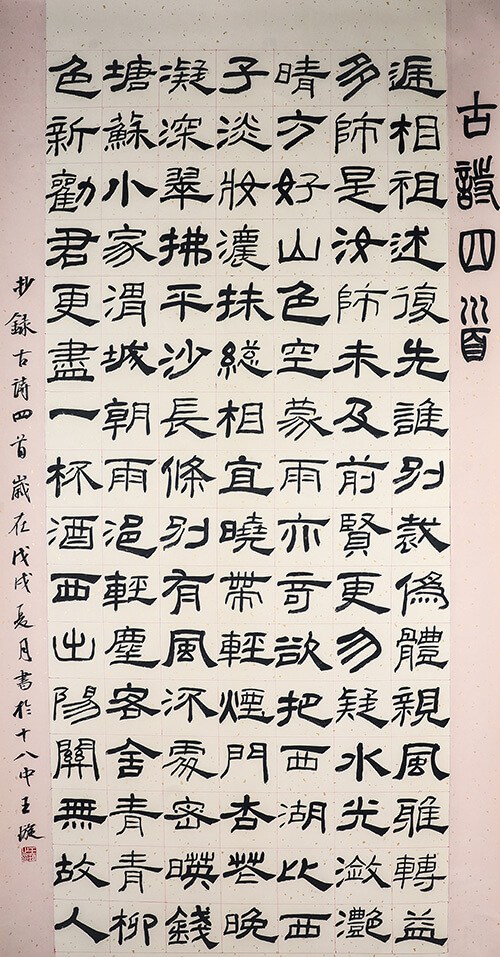 古詩四首
遞相祖述復先誰別裁偽體親風雅轉益
多師是汝師未及前賢更勿疑水光瀲灩
晴方好山色空蒙雨亦奇欲把西湖比西
子淡妝濃抹總相宜曉帶輕煙門杏花晚
凝深翠拂平沙長條別有風流處密暎錢
塘蘇小家渭城朝雨浥輕塵客舍青青柳
色新勸君更盡一杯酒西出陽關無故人
抄錄古詩四首歲在戊戌夏月書於十八中王璇